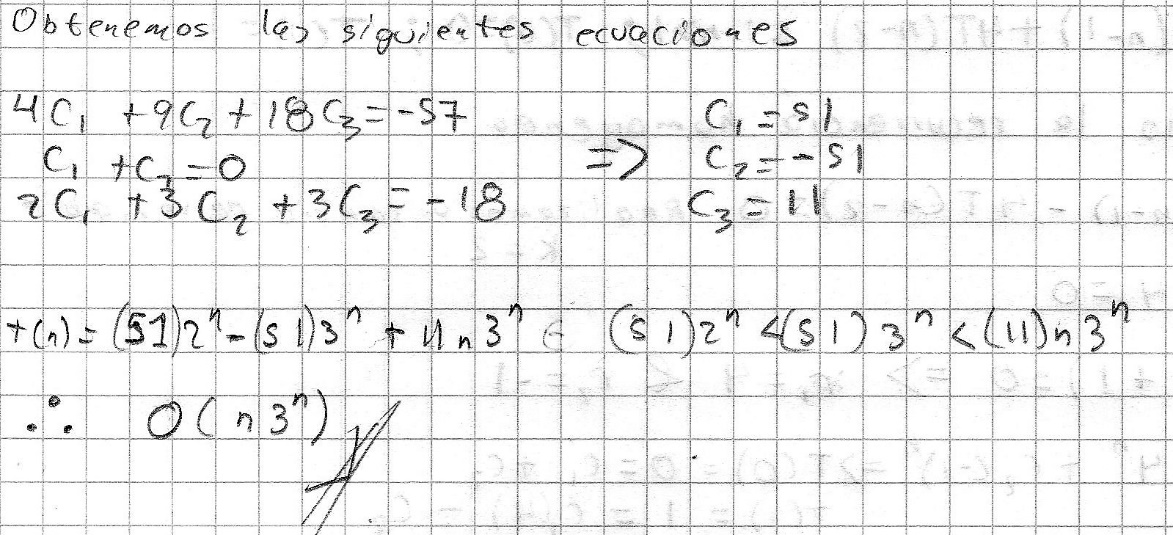 Obtenemos las siguientes ecuaciones
4C₁ + 9C₂ + 18C₃ = -57 C₁ = 51
C₁ + C₂ = 0 => C₂ = -51
2C₁ + 3C₂ + 3C₃ = -18 C₃ = 11
t(n) = (51)2ⁿ - (51)3ⁿ + 11n3ⁿ ∈ (51)2ⁿ < (51)3ⁿ < (11)n3ⁿ
∴ O(n3ⁿ)